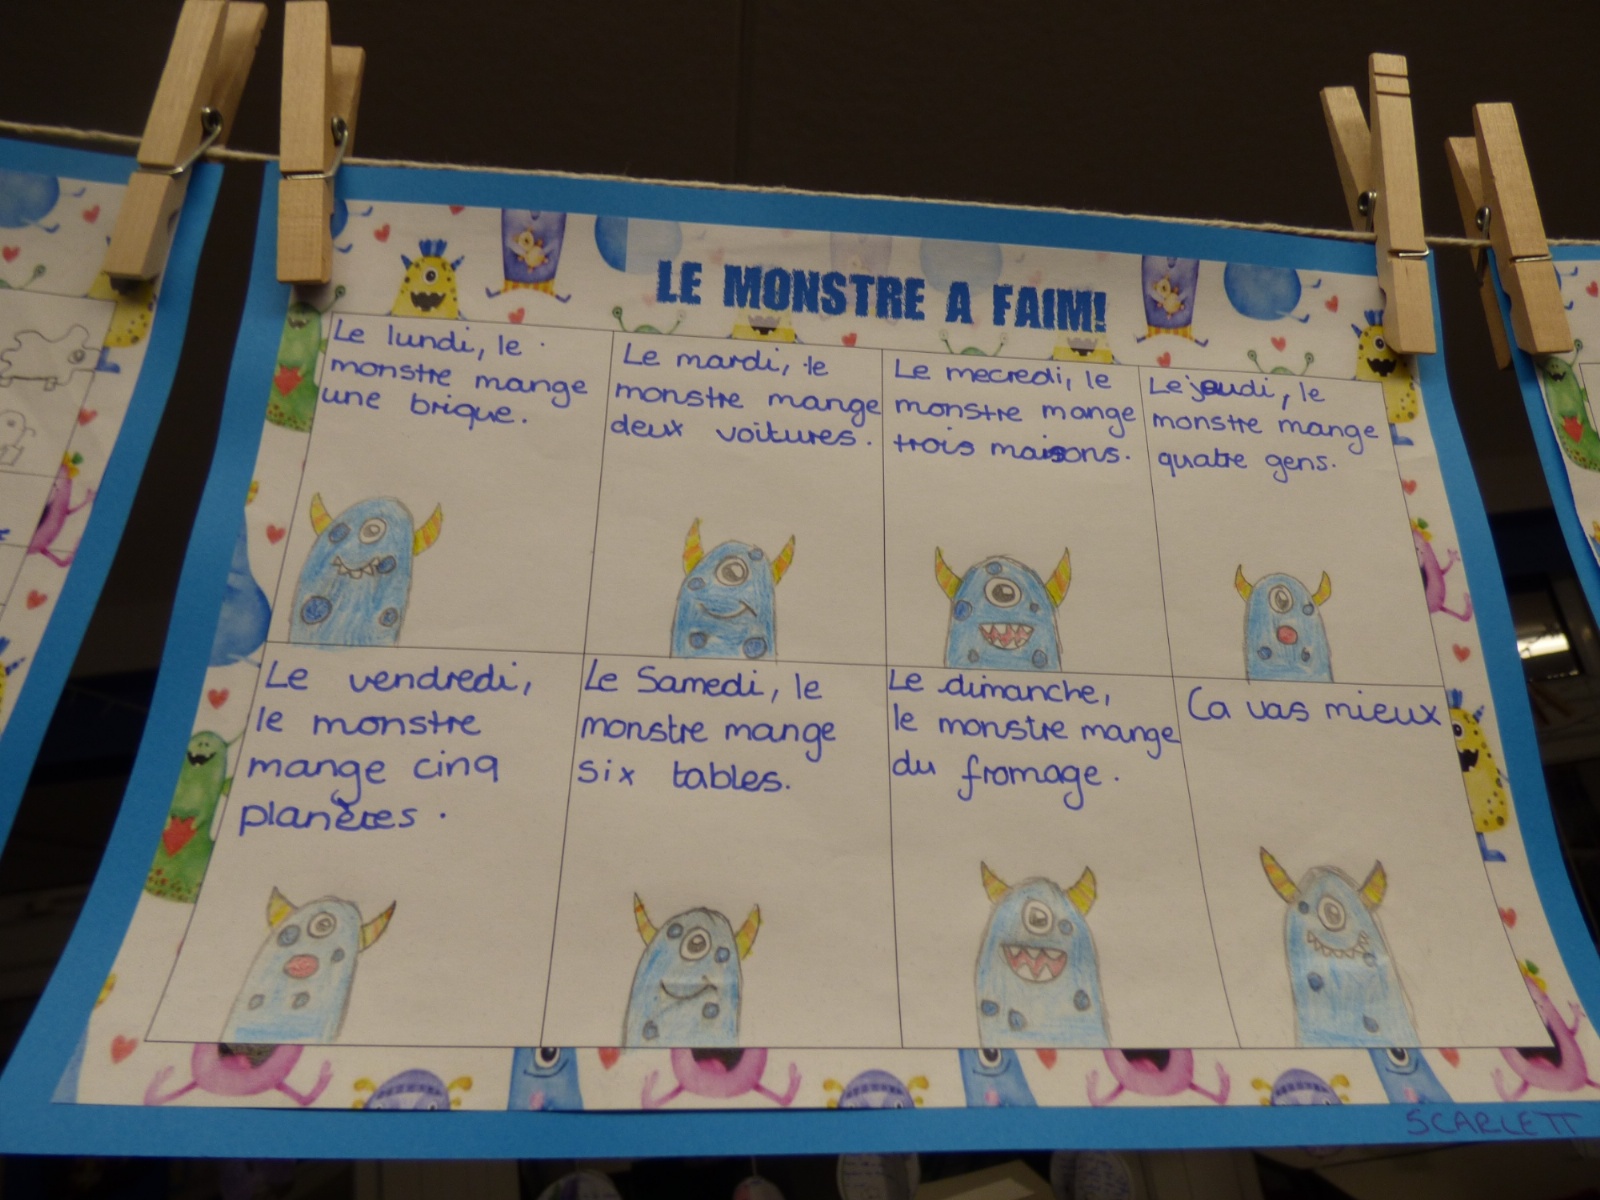 LE MONSTRE A FAIM!
Le lundi, le
monstre mange
une brique.
Le mardi, le
monstre mange
deux voitures.
Le mecredi, le
monstre mange
trois maisons.
Le jeudi, le
monstre mange
quatre gens.
Le vendredi,
le monstre
mange cinq
planètes.
Le Samedi, le
monstre mange
six tables.
Le dimanche,
le monstre mange
du fromage.
Ca vas mieux
SCARLETT